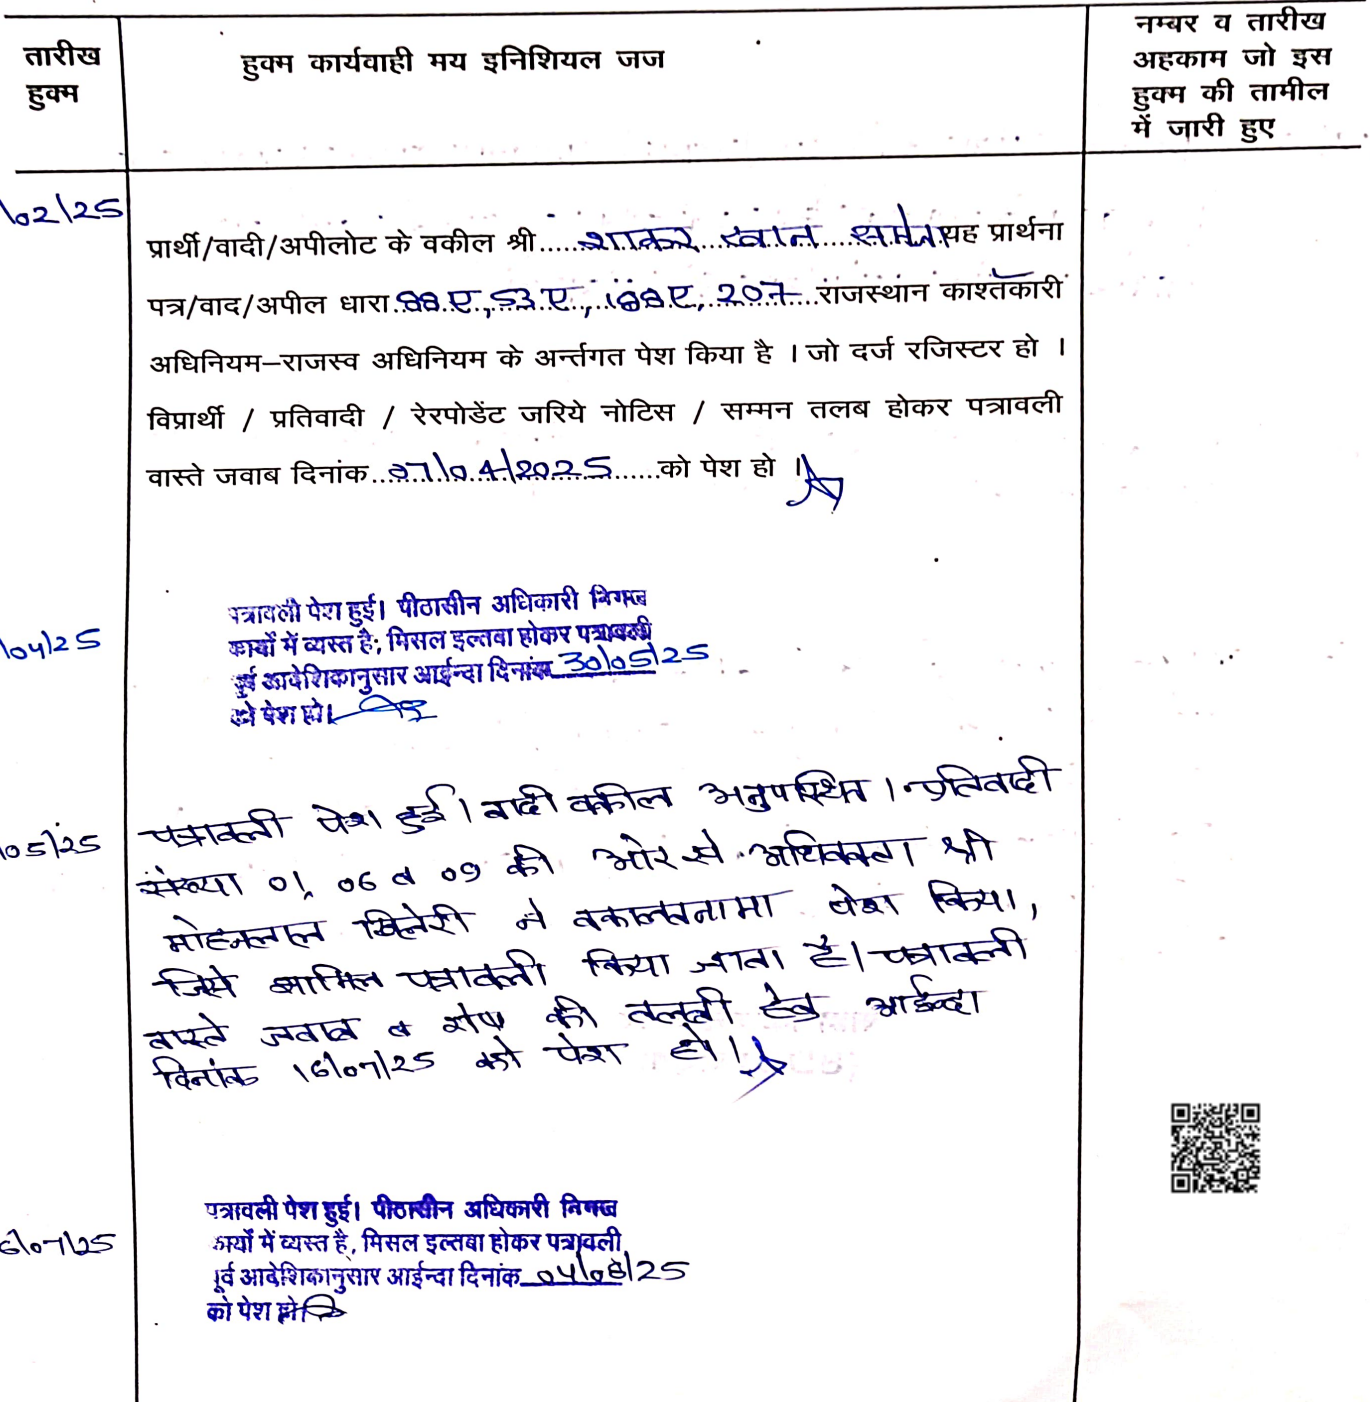 तारीख
हुक्म
हुक्म कार्यवाही मय इनिशियल जज
नम्बर व तारीख
अहकाम जो इस
हुक्म की तामील
में जारी हुए
\02/25
प्रार्थी/वादी/अपीलोट के वकील श्री.....शाकर खान.....यह प्रार्थना
पत्र/वाद/अपील धारा..88ए, 53ए, 188ए, 207...राजस्थान काश्तकारी
अधिनियम–राजस्व अधिनियम के अर्न्तगत पेश किया है । जो दर्ज रजिस्टर हो ।
विप्रार्थी / प्रतिवादी / रेरपोडेंट जरिये नोटिस / सम्मन तलब होकर पत्रावली
वास्ते जवाब दिनांक...07/04/2025......को पेश हो ।
\04/25
पत्रावली पेश हुई। पीठासीन अधिकारी
कार्यो में व्यस्त है; मिसल इल्तबा होकर पत्रावली
पूर्व आदेशिकानुसार आईन्दा दिनांक 30/05/25
को पेश हो।
05/25
पत्रावली पेश हुई। वादी वकील अनुपस्थित। प्रतिवादी
संख्या 01, 06 व 09 की ओर से अधिवक्ता श्री
मोहनलाल ने वकालतनामा पेश किया,
जिसे शामिल पत्रावली किया जाता है। पत्रावली
वास्ते जवाब व शेष की तलबी हेतु आईन्दा
दिनांक 16/07/25 को पेश हो।
6/07/25
पत्रावली पेश हुई। पीठासीन अधिकारी
कार्यों में व्यस्त है, मिसल इल्तबा होकर पत्रावली
पूर्व आदेशिकानुसार आईन्दा दिनांक 04/08/25
को पेश हो